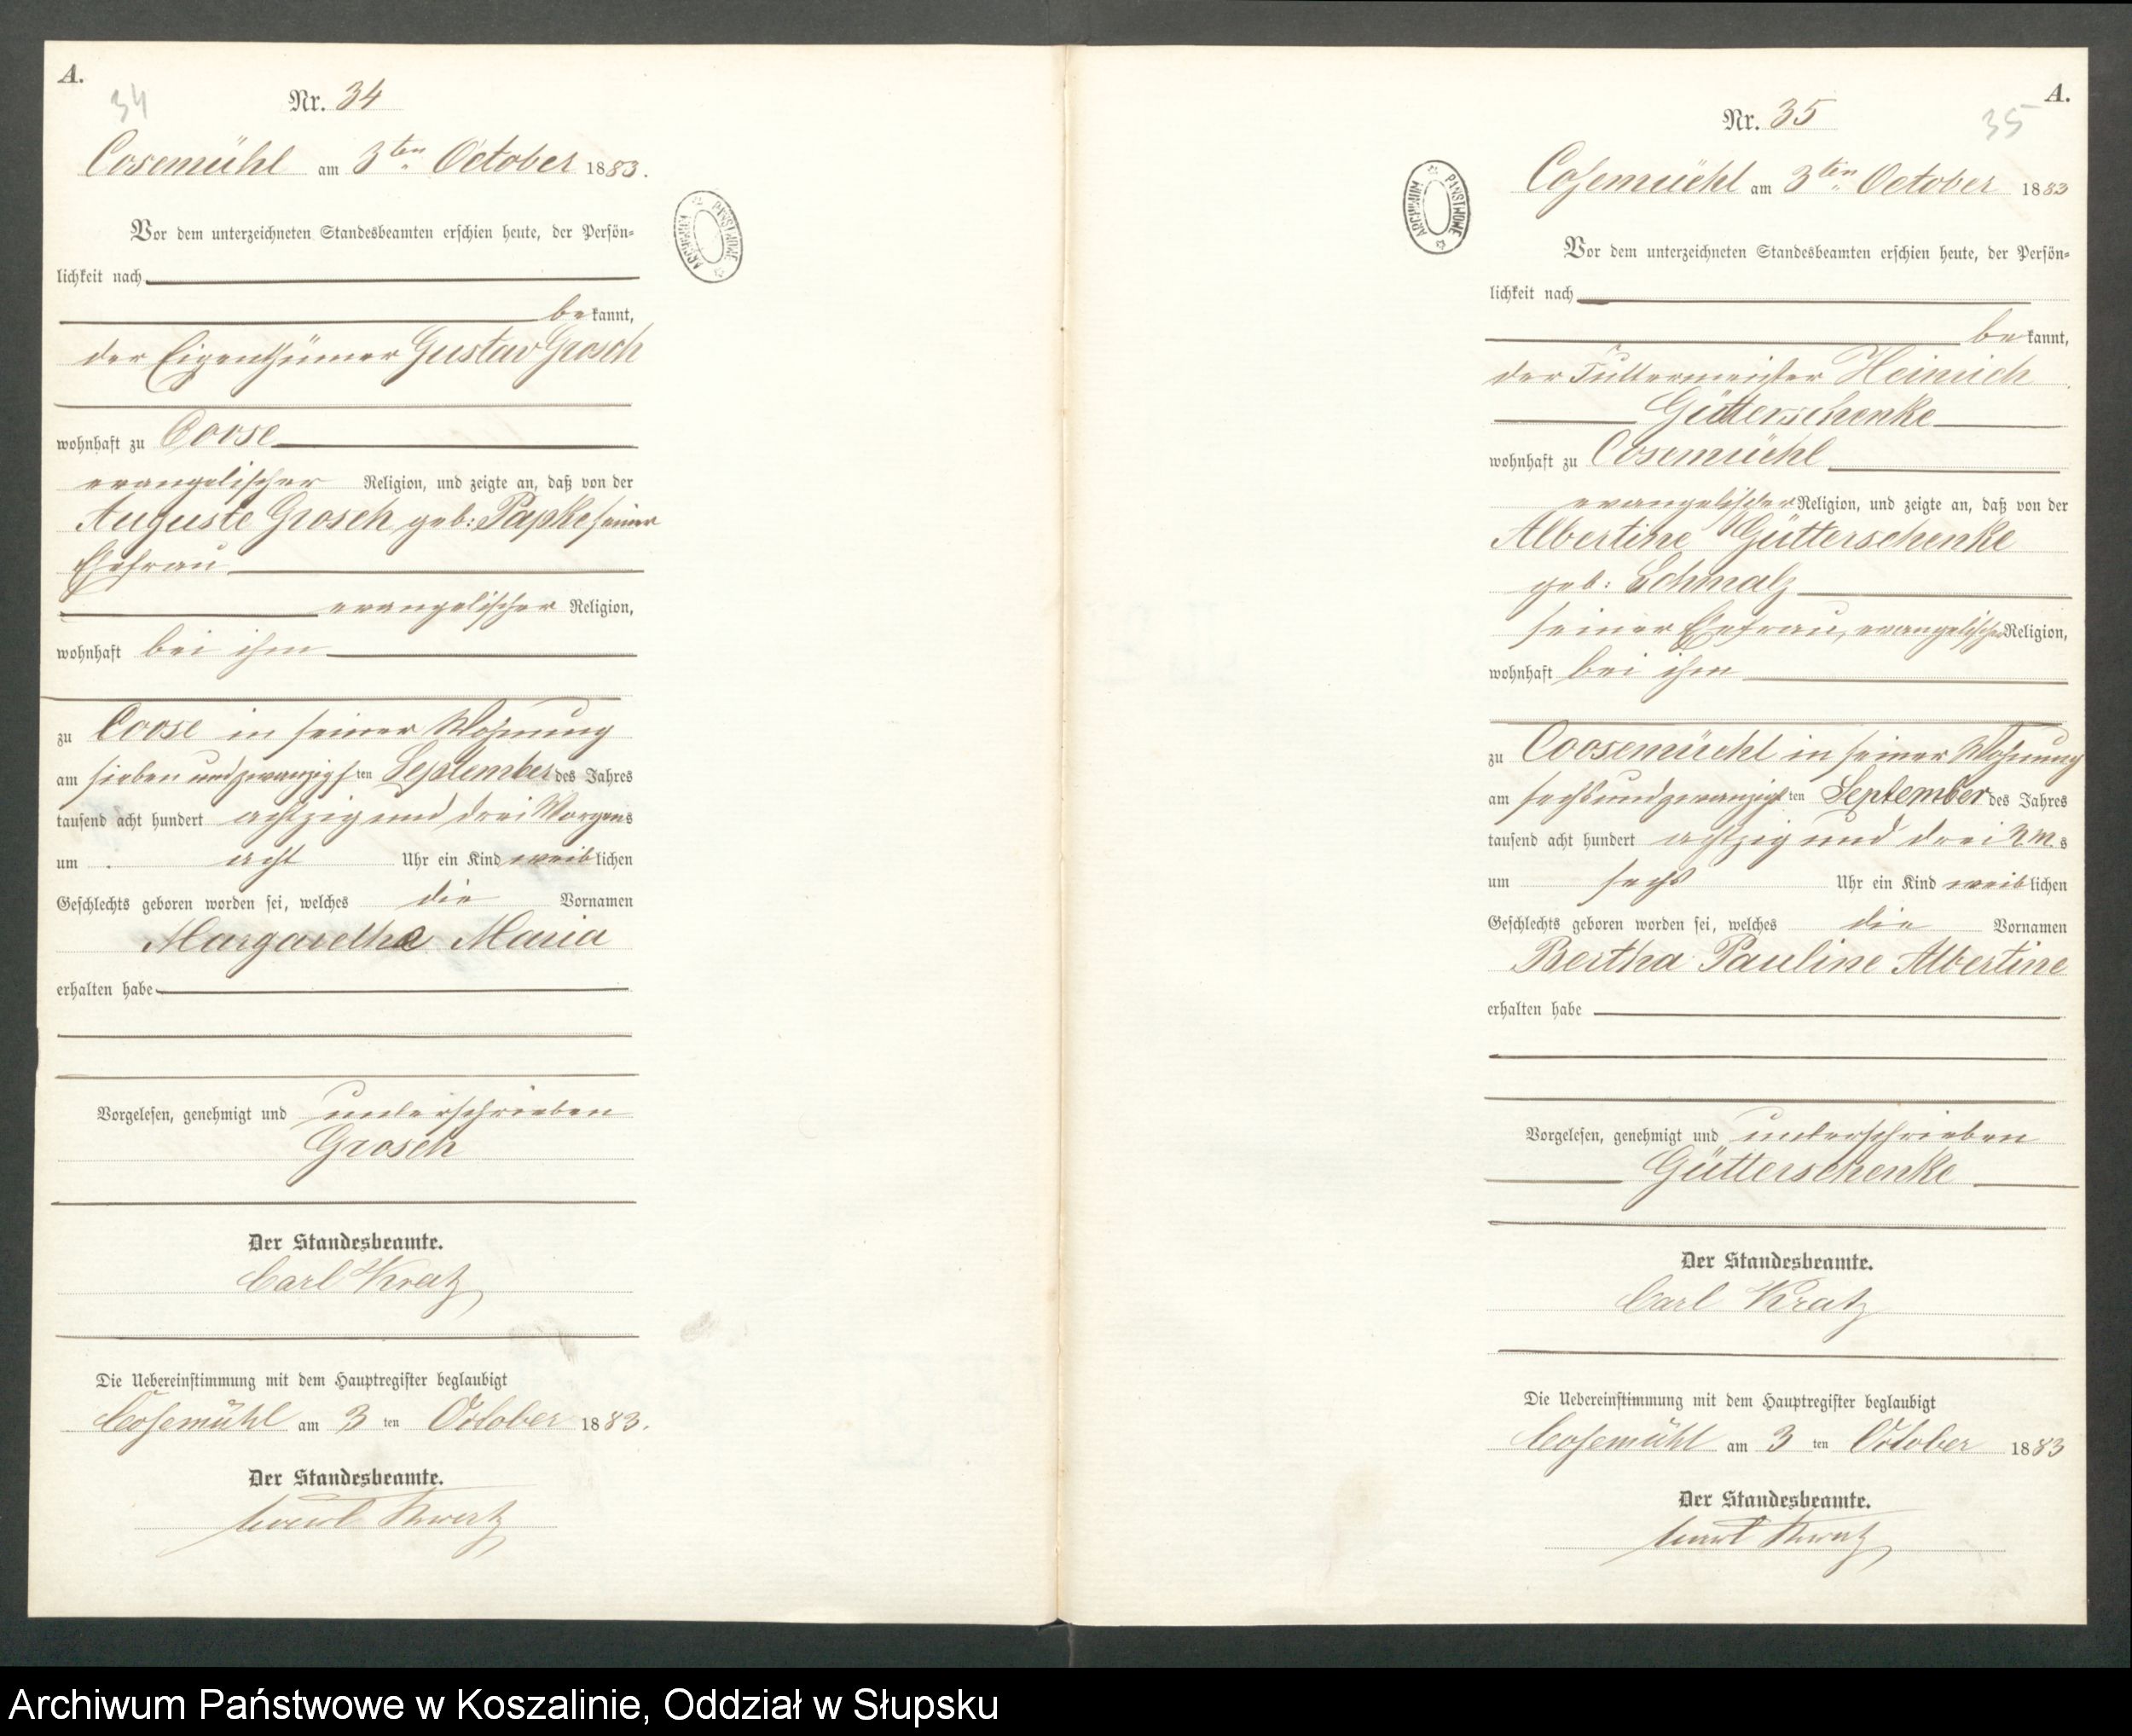 A.
34
Nr. 34
Cosemühl am 3ten October 1883.
Vor dem unterzeichneten Standesbeamten erschien heute, der Persön-
lichkeit nach
bekannt,
der Eigenthümer Gustav Grosch
wohnhaft zu Coose
evangelischer Religion, und zeigte an, daß von der
Auguste Grosch geb: Papke seiner
Ehefrau
evangelischer Religion,
wohnhaft bei ihm
zu Coose in seiner Wohnung
am sieben und zwanzigsten September des Jahres
tausend acht hundert achtzig und drei Morgens
um acht Uhr ein Kind weiblichen
Geschlechts geboren worden sei, welches die Vornamen
Margarethe Maria
erhalten habe
Vorgelesen, genehmigt und unterschrieben
Grosch
Der Standesbeamte.
Carl Kratz
Die Uebereinstimmung mit dem Hauptregister beglaubigt
Cosemühl am 3 ten October 1883.
Der Standesbeamte.
Carl Kratz
ARCHIWUM PAŃSTWOWE
A.
35
Nr. 35
Cosemuehl am 3ten October 1883
Vor dem unterzeichneten Standesbeamten erschien heute, der Persön-
lichkeit nach
bekannt,
der Futtermeister Heinrich
Gütterschenke
wohnhaft zu Cosemüehl
evangelischer Religion, und zeigte an, daß von der
Albertine Gütterschenke
geb: Schmalz
seiner Ehefrau, evangelischer Religion,
wohnhaft bei ihm
zu Coosemüehl in seiner Wohnung
am sechsundzwanzigsten September des Jahres
tausend acht hundert achtzig und drei N.M.s
um sechs Uhr ein Kind weiblichen
Geschlechts geboren worden sei, welches die Vornamen
Bertha Pauline Albertine
erhalten habe
Vorgelesen, genehmigt und unterschrieben
Gütterschenke
Der Standesbeamte.
Carl Kratz
Die Uebereinstimmung mit dem Hauptregister beglaubigt
Cosemühl am 3 ten October 1883
Der Standesbeamte.
Carl Kratz
ARCHIWUM PAŃSTWOWE
Archiwum Państwowe w Koszalinie, Oddział w Słupsku